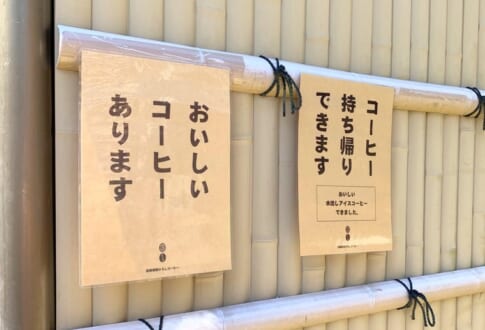 おいしい
コーヒー
あります
コーヒー
持ち帰り
できます
おいしい
水出しアイスコーヒー
できました。